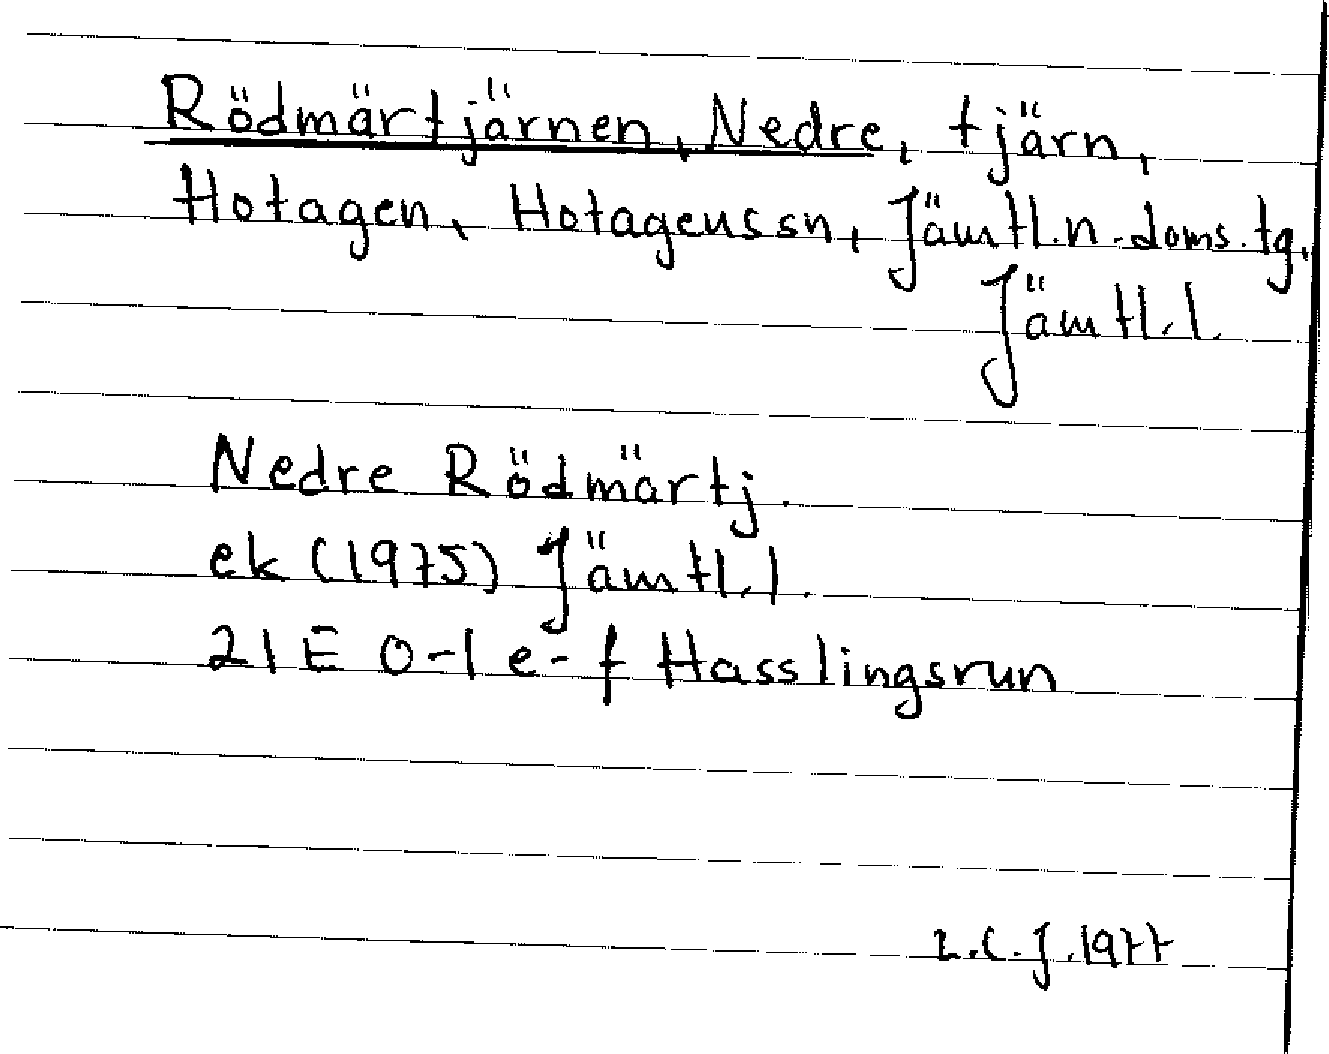 Rödmärtjärnen, Nedre, tjärn,
Hotagen, Hotagenssn, Jämtl.n.doms.tg,
Jämtl.l.
Nedre Rödmärtj.
ek (1975) Jämtl.l.
21E 0-1 e-f Hasslingsrun
L.C.J.1977